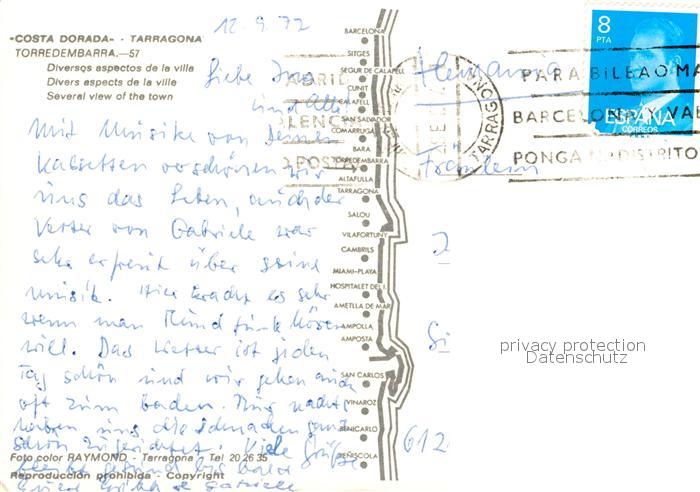 12.9.77
«COSTA DORADA» - TARRAGONA
TORREDEMBARRA.—57
Diversos aspectos de la villa
Divers aspects de la ville
Several view of the town
Liebe
und alle
Mit Musik von Deinen
Kassetten verschönern wir
uns das Leben, auch der
Vetter von Gabriele war
sehr erfreut über seine
Musik. Hier kracht es sehr
wenn man Rundfunk hören
will. Das Wetter ist jeden
Tag schön und wir gehen auch
oft zum baden. Nur nachts
haben uns die Schnacken ganz
schön zugerichtet. Viele Grüße
bleibt gesund bis bald
Gabriele
Foto color RAYMOND - Tarragona - Tel 20 26 35
Reproducción prohibida - Copyright
BARCELONA
SITGES
SEGUR DE CALAFELL
CUNIT
CALAFELL
SAN SALVADOR
COMARRUGA
BARA
TORREDEMBARRA
ALTAFULLA
TARRAGONA
SALOU
VILAFORTUNY
CAMBRILS
MIAMI-PLAYA
HOSPITALET DEL I.
AMETLLA DE MAR
AMPOLLA
AMPOSTA
SAN CARLOS
VINAROZ
BENICARLO
PEÑISCOLA
8
PTA
ESPAÑA
CORREOS
TARRAG
PARA BILBAO MA
BARCELONA Y VAL
PONGA N.º DISTRITO
Alemania
Fräulein
612
privacy protection
Datenschutz